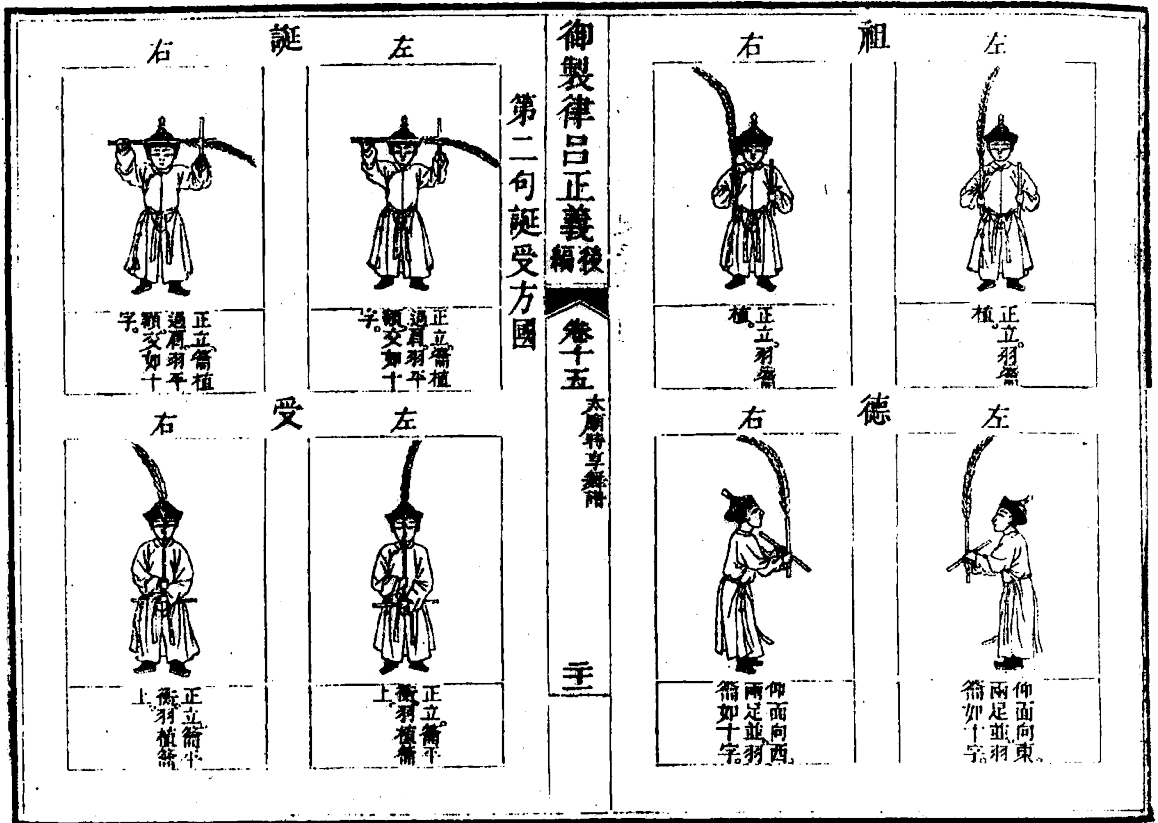 祖
左
正立羽籥
植
右
正立羽籥
植
德
左
仰面向東
兩足並羽
籥如十字
右
仰面向西
兩足並羽
籥如十字
御製律呂正義後編
卷十五
太廟時享舞譜
二十二
第二句誕受方國
誕
左
正立籥植
過肩羽平
額交如十
字
右
正立籥植
過肩羽平
額交如十
字
受
左
正立籥平
衡羽植籥
上
右
正立籥平
衡羽植籥
上